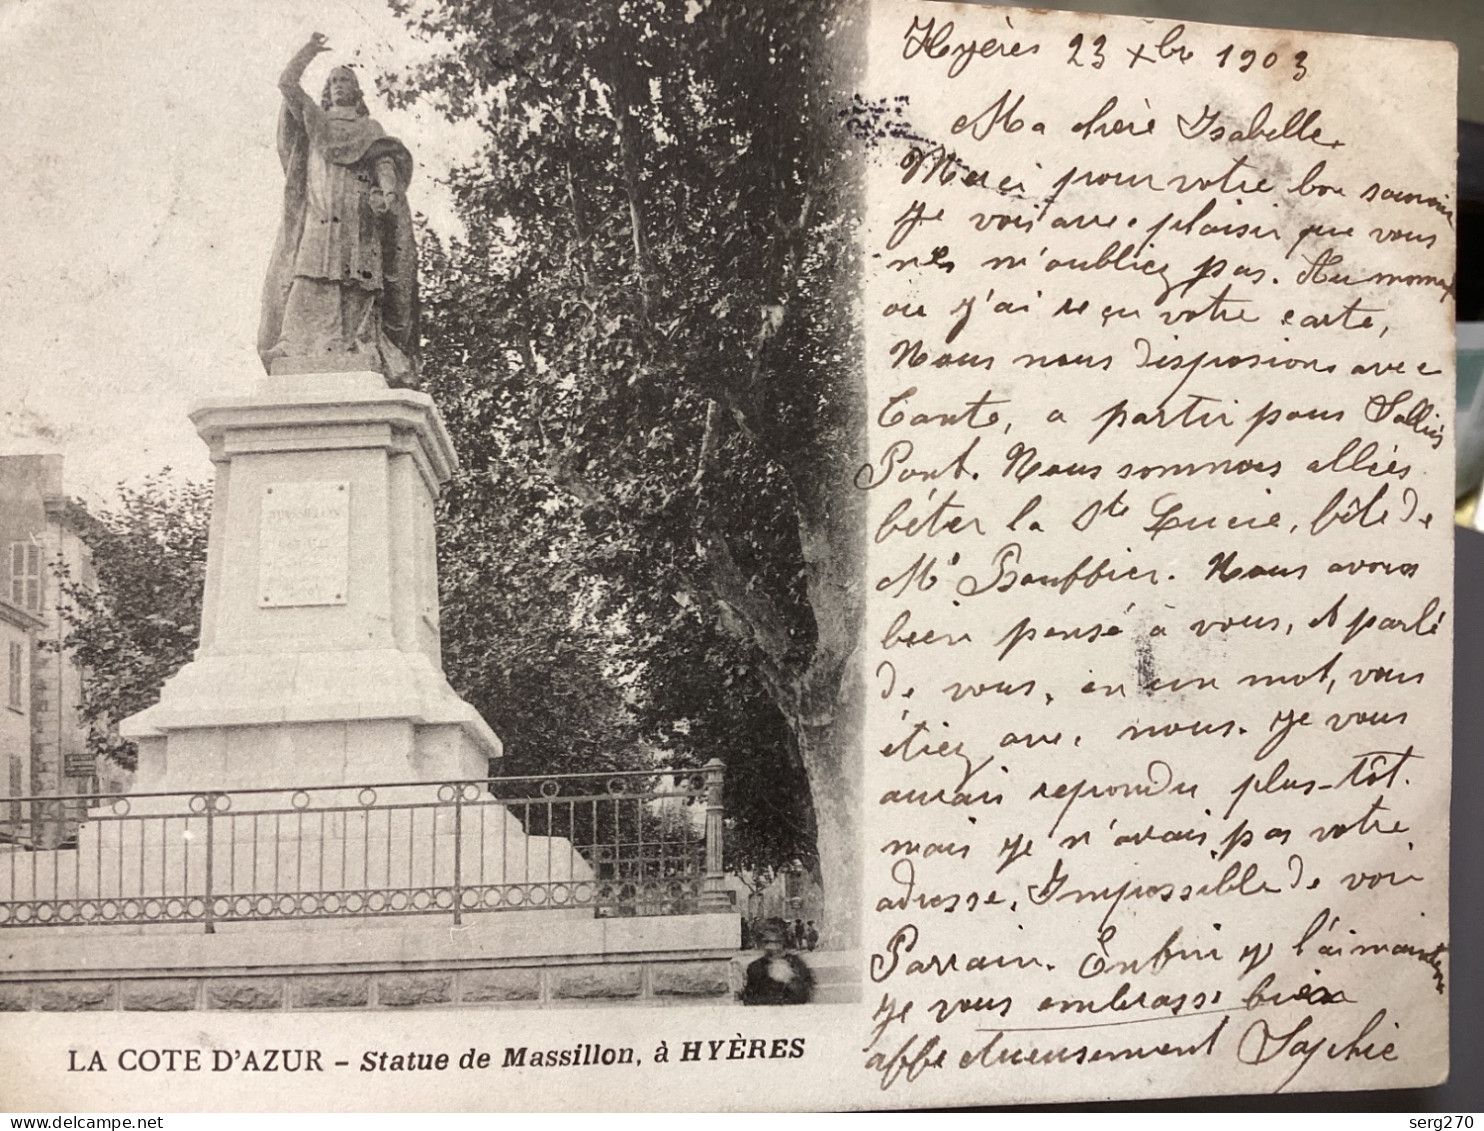 Hyères 23 Xbre 1903
Ma chère Isabelle.
Merci pour votre bon souvenir
Je vois avec plaisir que vous
nes m'oubliez pas. Au moment
ou j'ai reçu votre carte,
Nous nous disposions avec
Tante, a partir pour Solliès
Pont. Nous sommes alliés
fêter la Ste Lucie, fête de
Me Bouffier. Nous avons
bien pensé à vous, et parlé
de vous, en un mot, vous
étiez avec nous. Je vous
aurais repondu plus-tôt.
mais je n'avais pas votre
adresse. Impossible de voir
Parrain. Enfin je l'ai maintenant
Je vous embrasse bien
affectueusement Sophie
LA COTE D'AZUR – Statue de Massillon, à HYÈRES
serg270